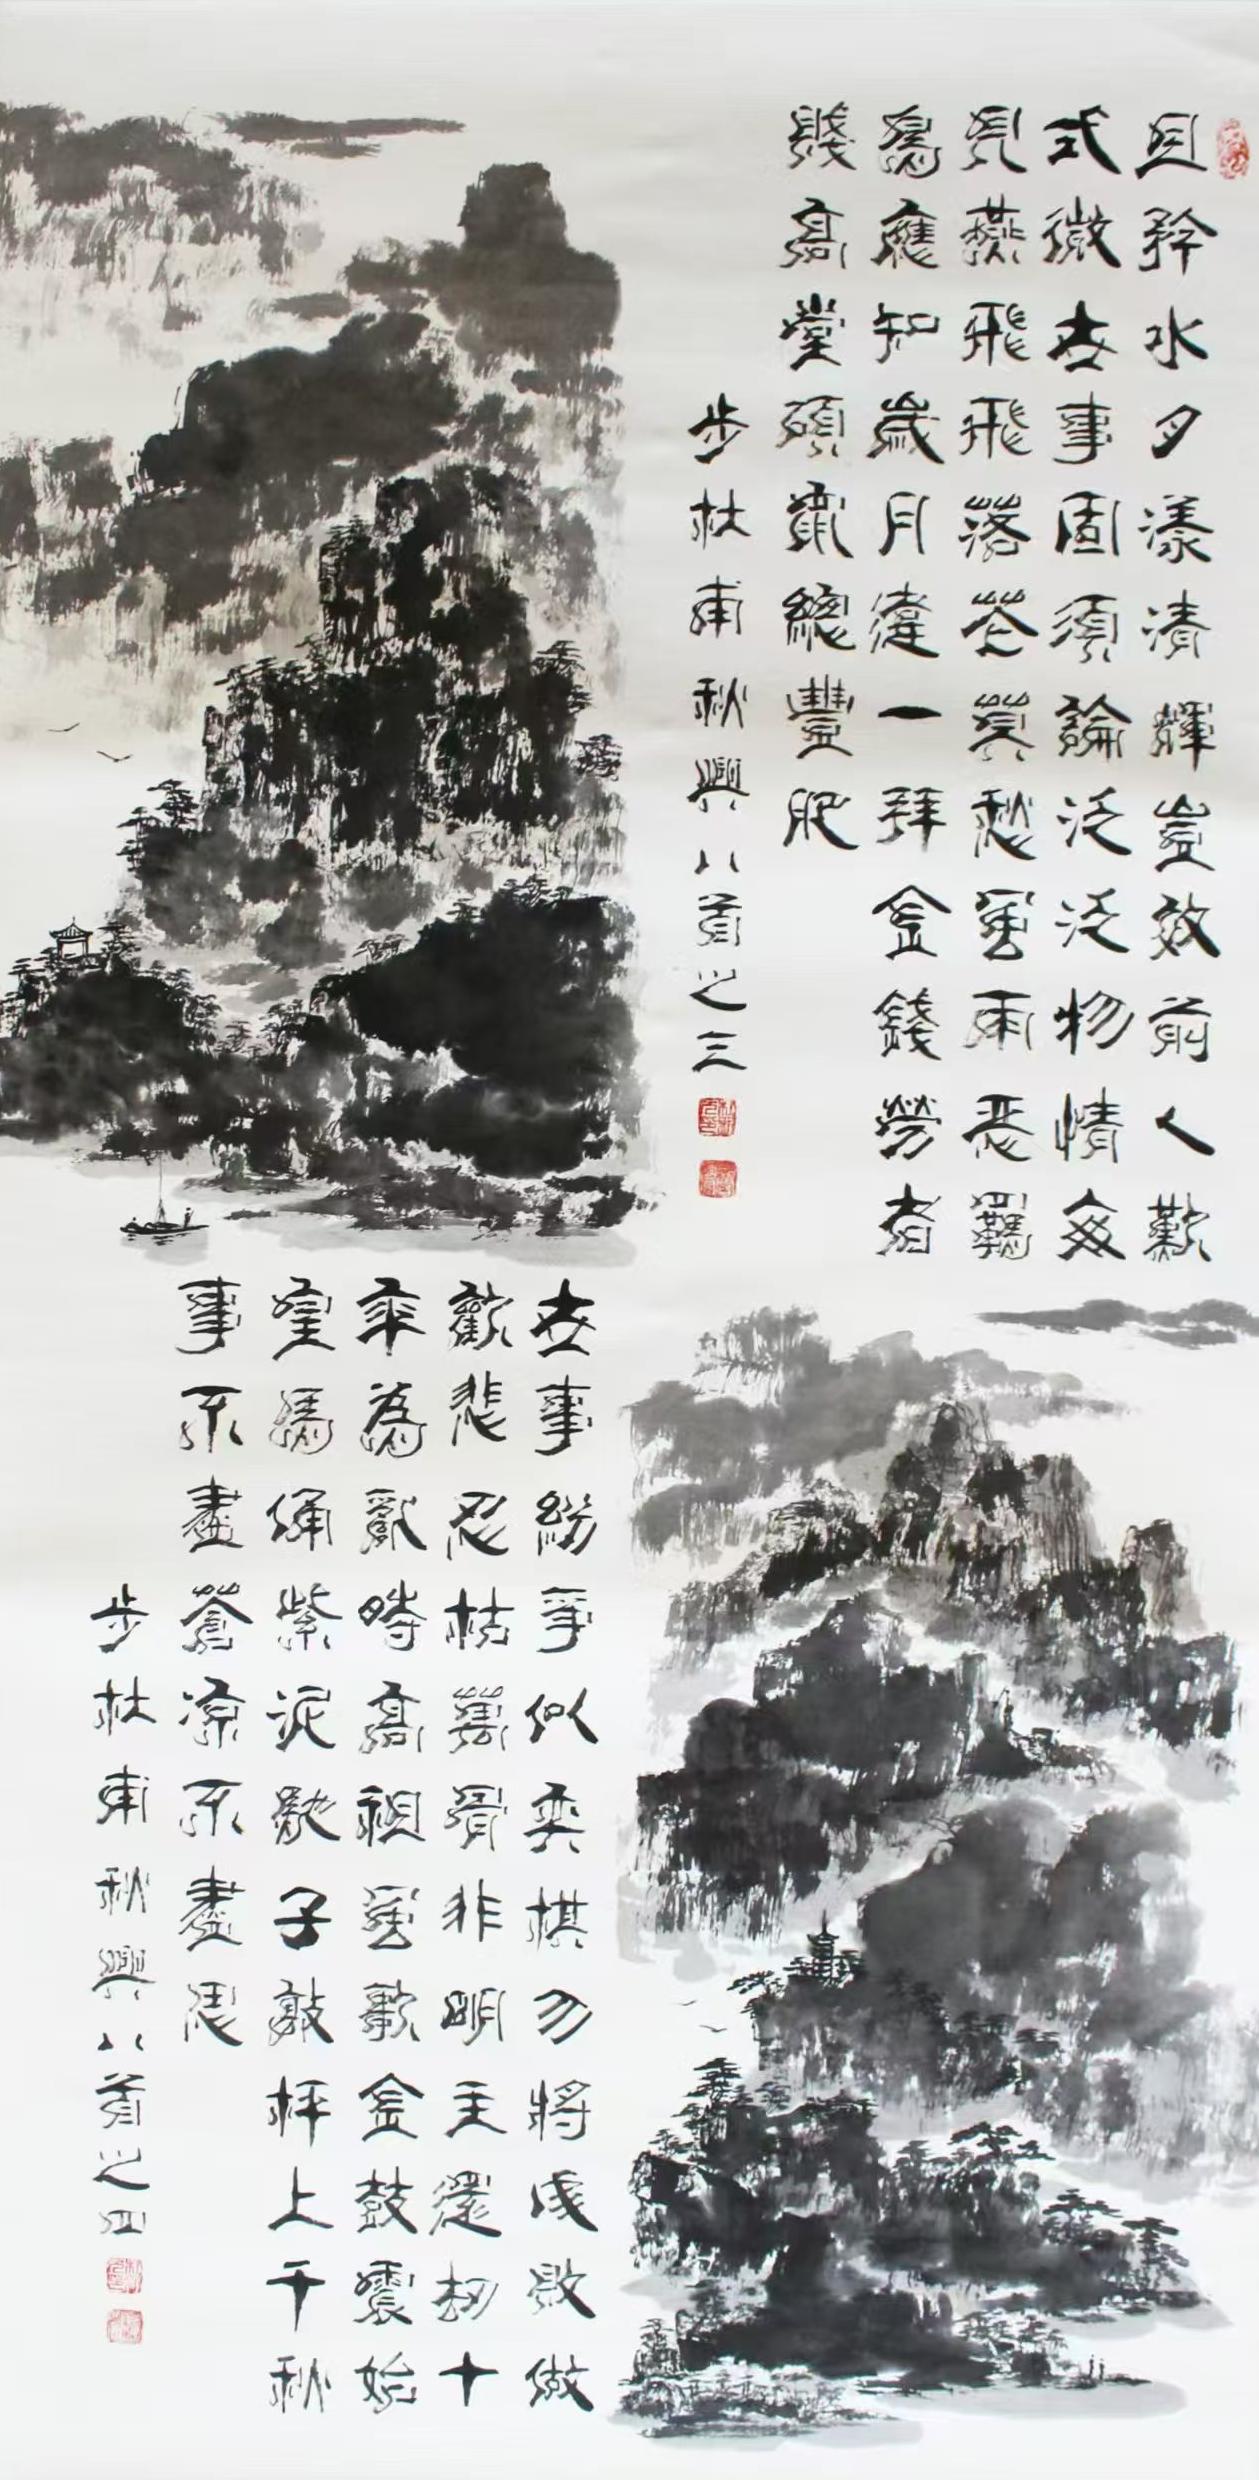 且矜水夕漾清輝豈效前人歎
式微世事固須論泛泛物情每
見燕飛飛落花莫愁風雨惡羈
鳥應知歲月違一拜金錢勞者
賤高堂碩鼠總豐肥
步杜甫秋興八首之三
世事紛爭似奕棋勿將成敗做
歡悲忍枯萬骨非明主還劫十
年為亂時高祖風歌金鼓震始
皇馬紫泥馳子敲枰上千秋
事不盡蒼涼不盡思
步杜甫秋興八首之四